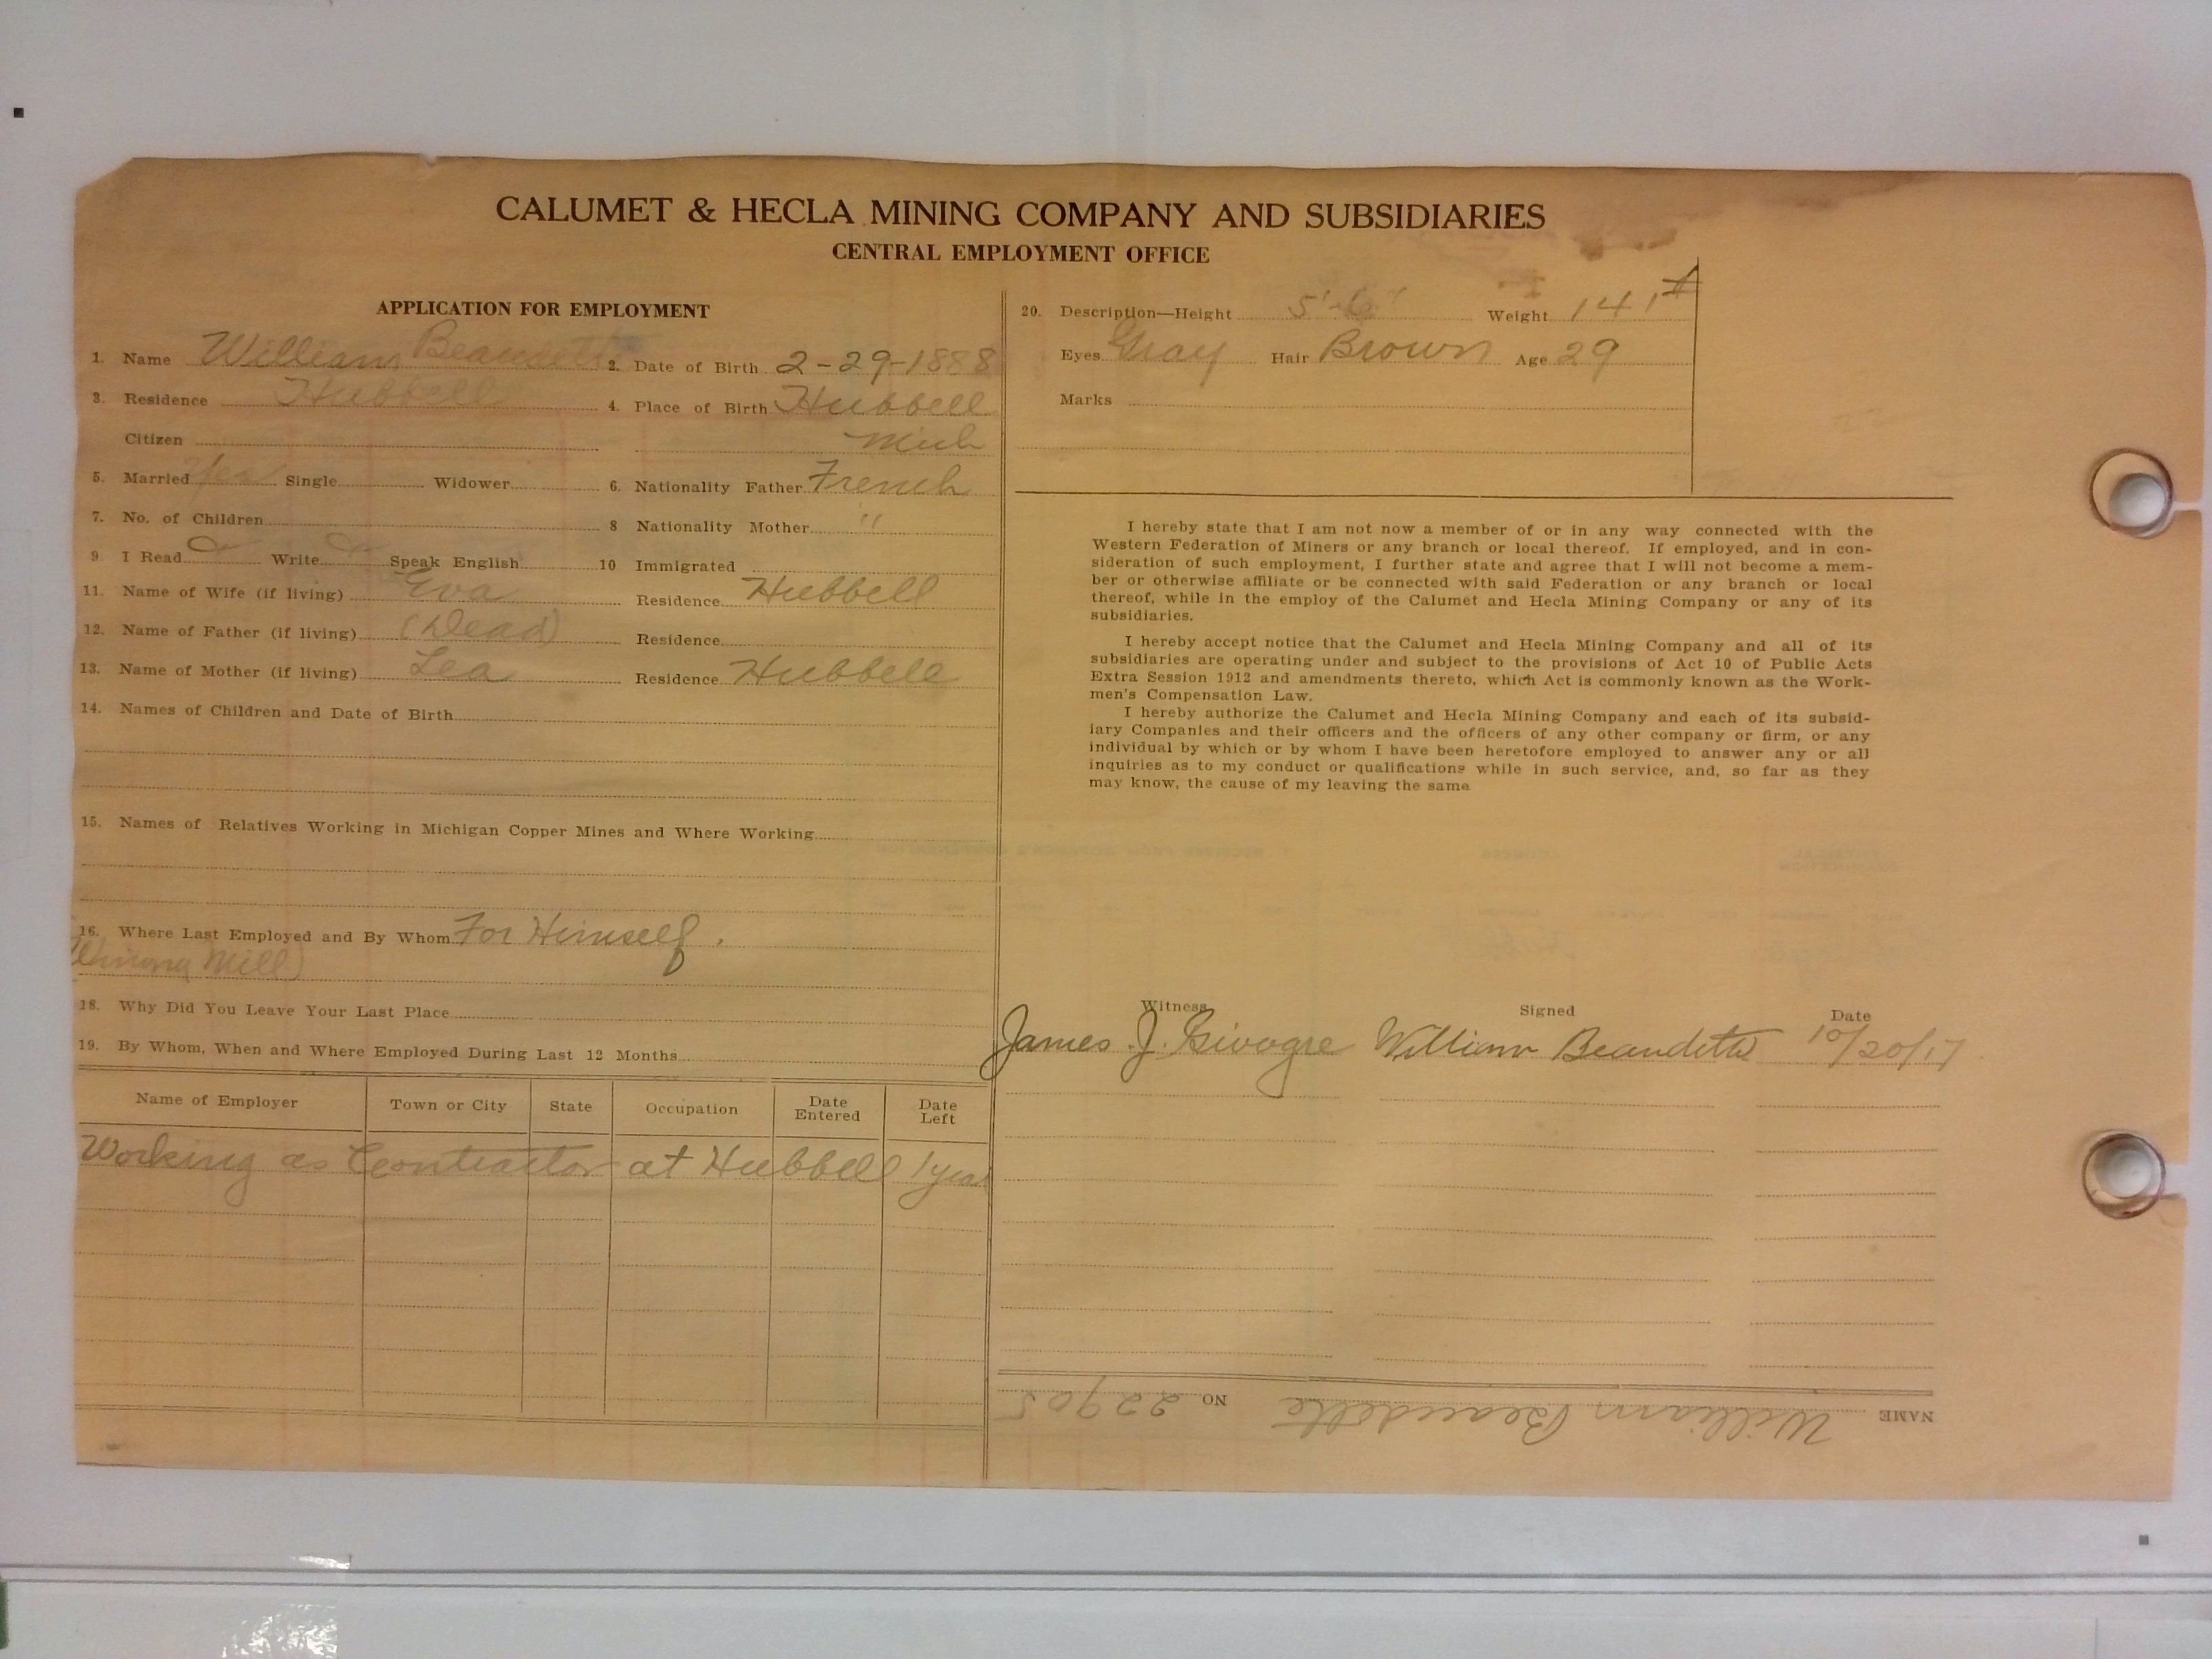 CALUMET & HECLA MINING COMPANY AND SUBSIDIARIES
CENTRAL EMPLOYMENT OFFICE
APPLICATION FOR EMPLOYMENT
1. Name William Beaudette 2. Date of Birth 2-29-1888
3. Residence Hubbell 4. Place of Birth Hubbell
Citizen Mich
5. Married Yes Single Widower 6. Nationality Father French
7. No. of Children 8 Nationality Mother "
9. I Read Write Speak English 10 Immigrated
11. Name of Wife (if living) Eva Residence Hubbell
12. Name of Father (if living) (Dead) Residence
13. Name of Mother (if living) Lea Residence Hubbell
14. Names of Children and Date of Birth
15. Names of Relatives Working in Michigan Copper Mines and Where Working
16. Where Last Employed and By Whom For Himself.
Mill)
18. Why Did You Leave Your Last Place
19. By Whom, When and Where Employed During Last 12 Months
Name of Employer Town or City State Occupation Date Entered Date Left
Working as Contractor at Hubbell 1 year
20. Description—Height 5'-6" Weight 141 #
Eyes Gray Hair Brown Age 29
Marks
I hereby state that I am not now a member of or in any way connected with the
Western Federation of Miners or any branch or local thereof. If employed, and in con-
sideration of such employment, I further state and agree that I will not become a mem-
ber or otherwise affiliate or be connected with said Federation or any branch or local
thereof, while in the employ of the Calumet and Hecla Mining Company or any of its
subsidiaries.
I hereby accept notice that the Calumet and Hecla Mining Company and all of its
subsidiaries are operating under and subject to the provisions of Act 10 of Public Acts
Extra Session 1912 and amendments thereto, which Act is commonly known as the Work-
men's Compensation Law.
I hereby authorize the Calumet and Hecla Mining Company and each of its subsid-
iary Companies and their officers and the officers of any other company or firm, or any
individual by which or by whom I have been heretofore employed to answer any or all
inquiries as to my conduct or qualifications while in such service, and, so far as they
may know, the cause of my leaving the same
Witness Signed Date
James J. William Beaudette 10/20/17
NAME William Beaudette NO 22905